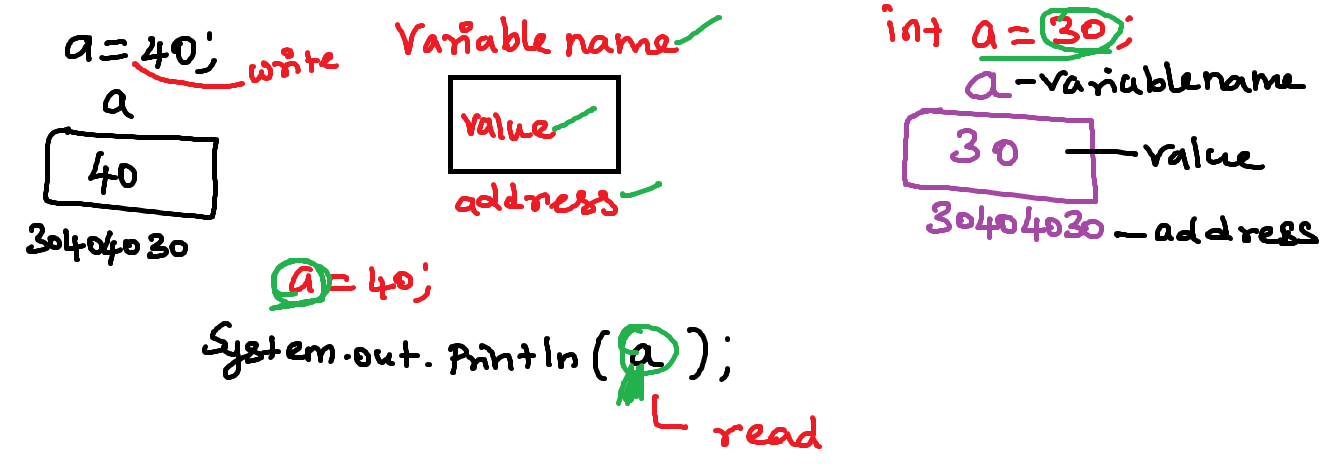 a = 40;
write
a
40
30404030
Variable name
value
address
int a = 30;
a - variable name
30 - value
30404030 - address
a = 40;
System.out.println(a);
read